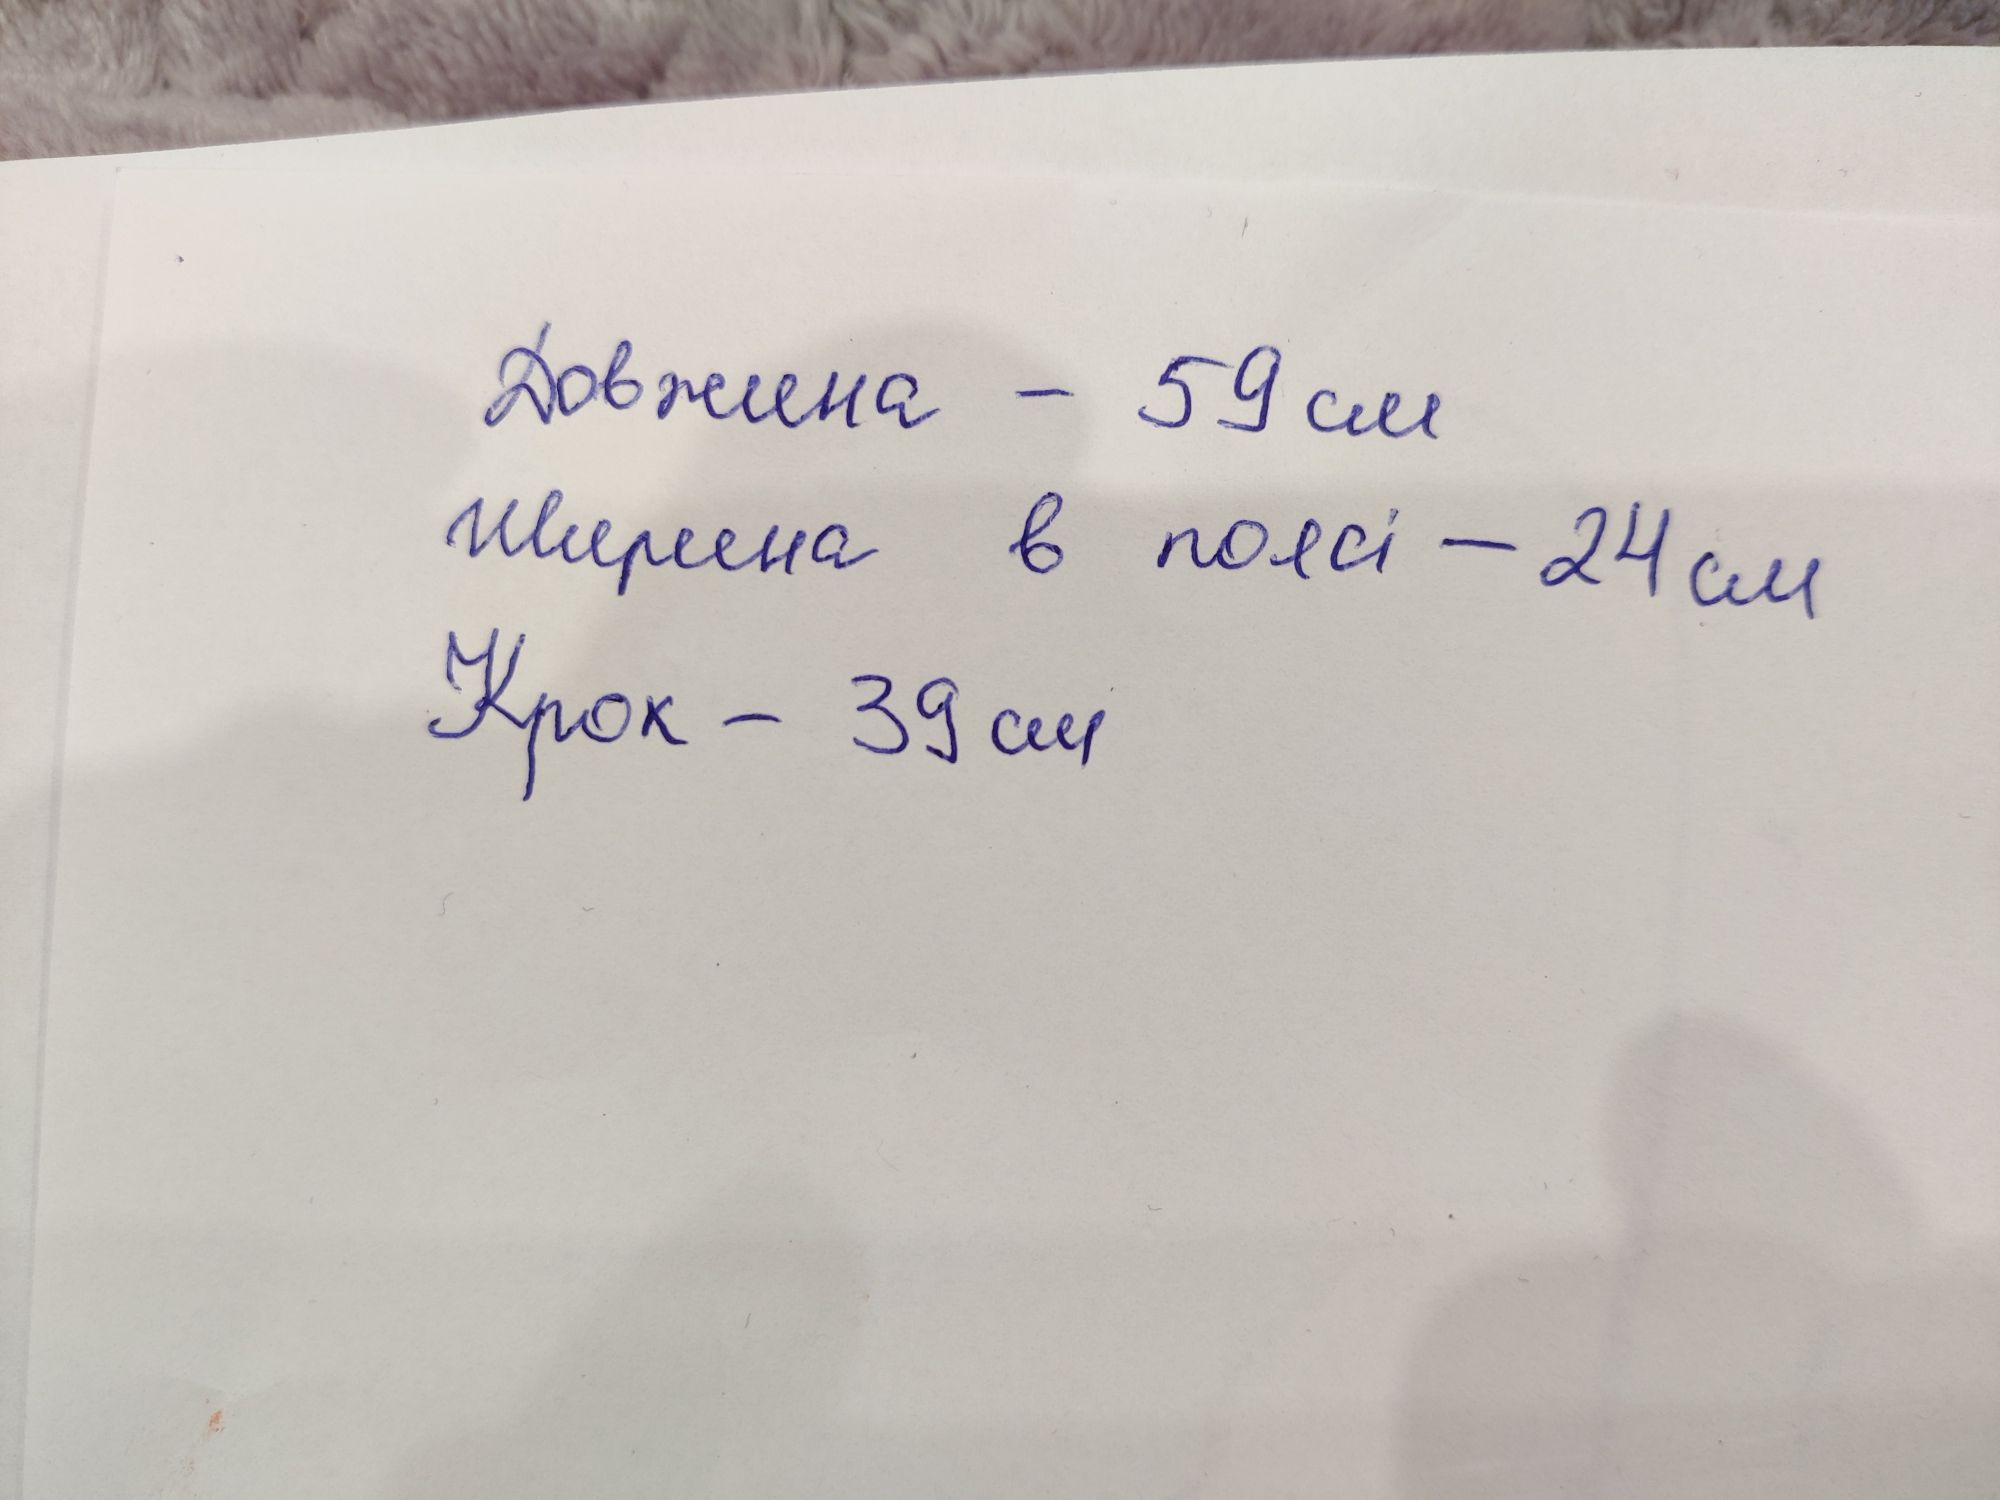 Довжина - 59 см
Ширина в поясі - 24 см
Крок - 39 см